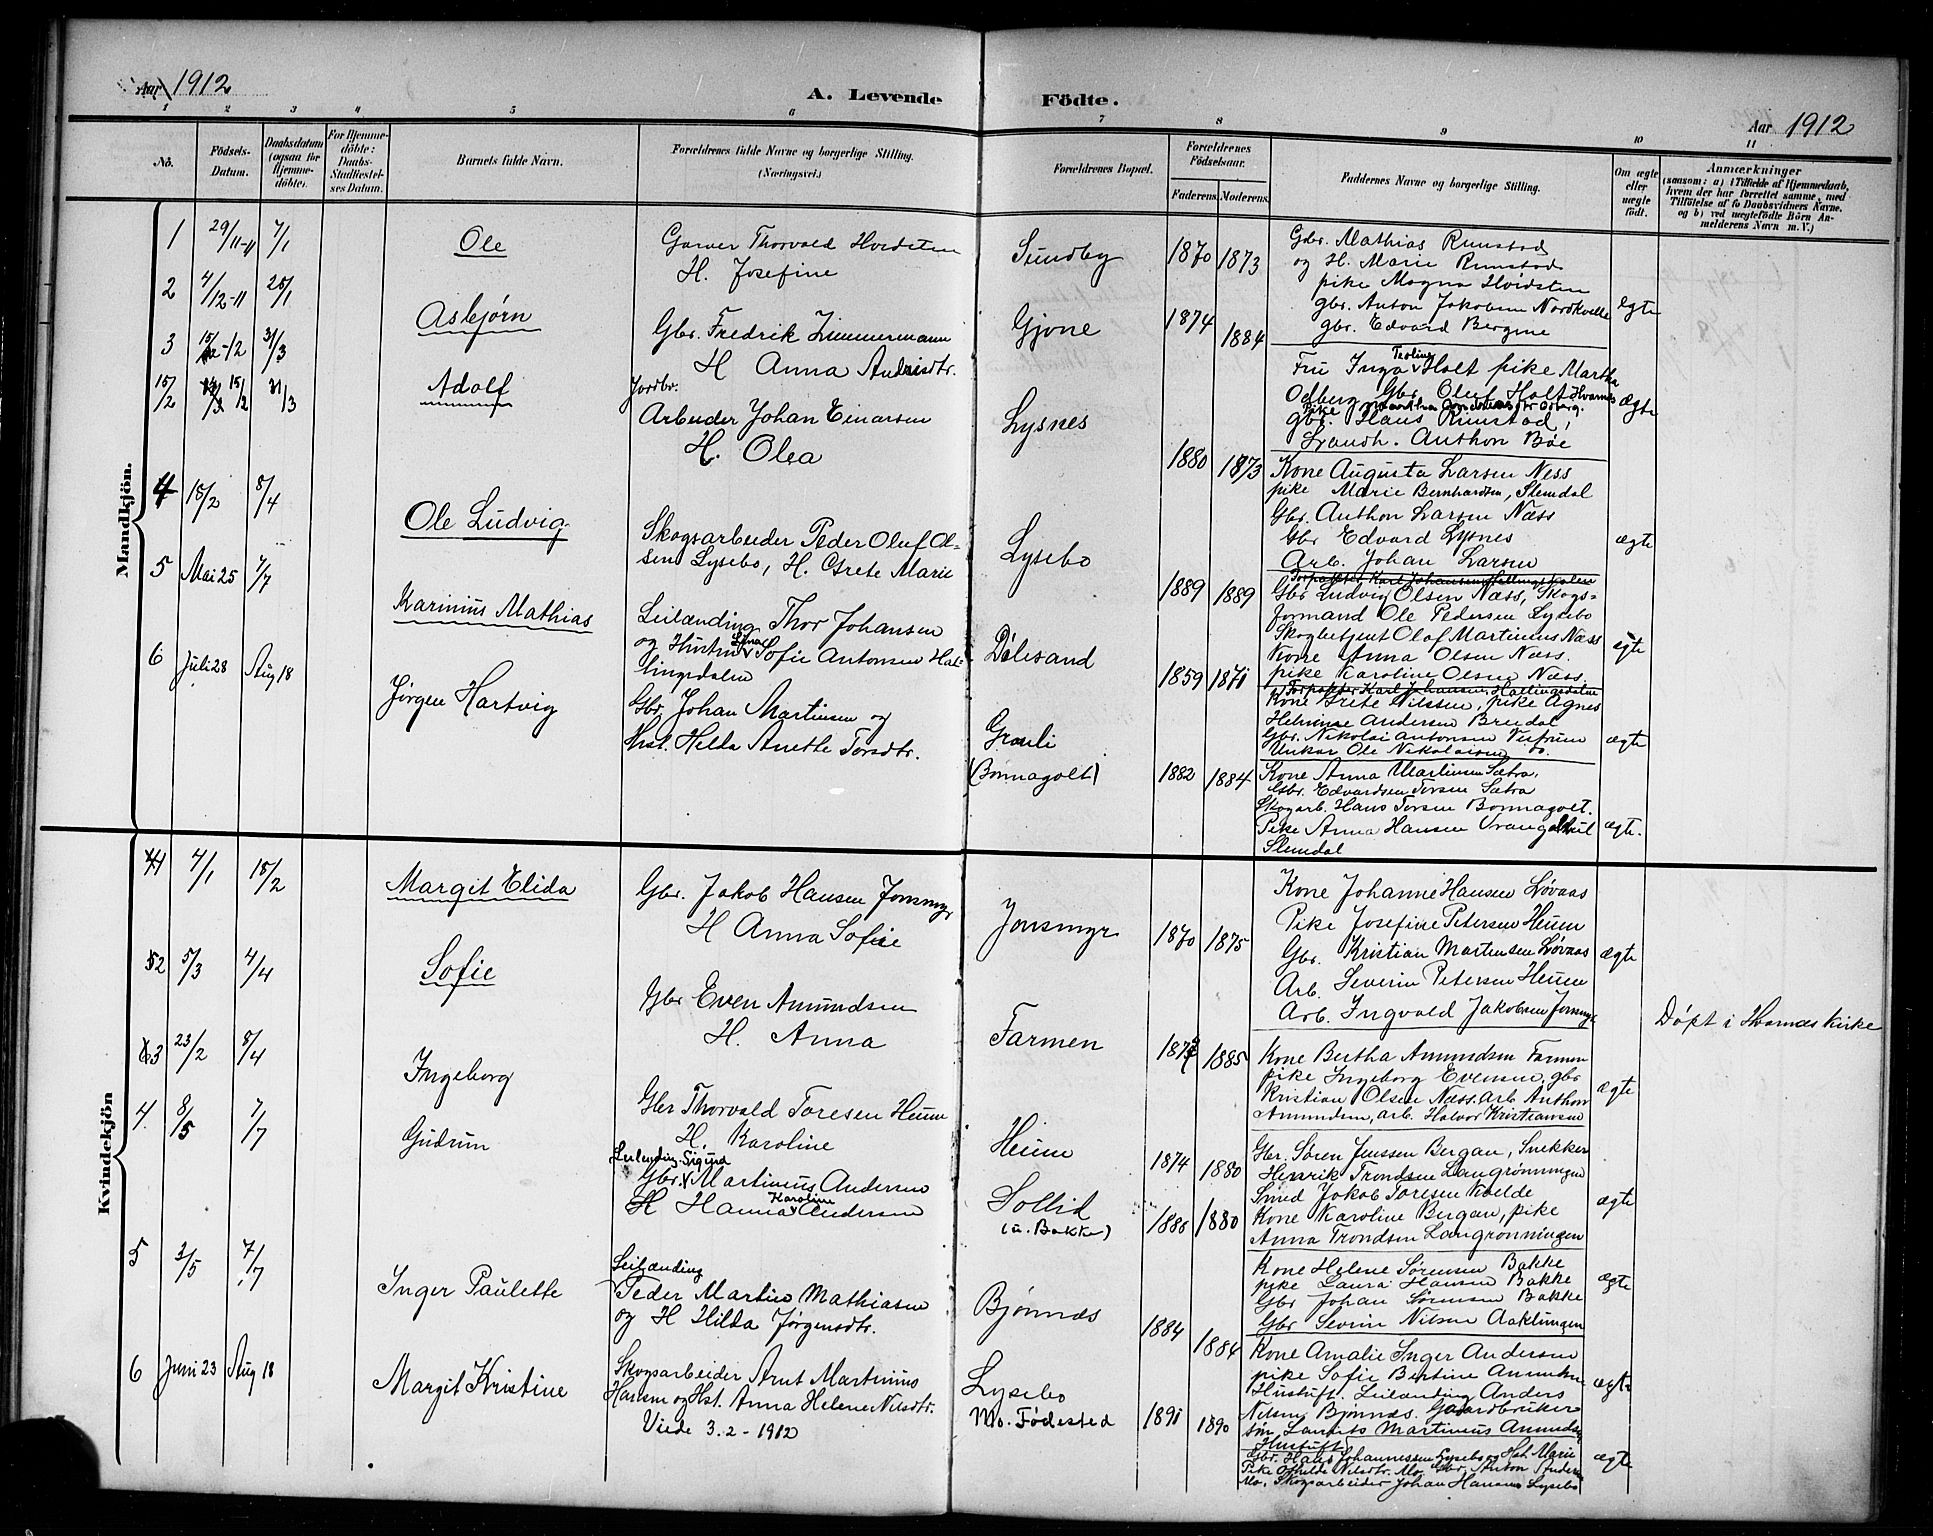 Aar 1912
A. Levende
Födte.
Aar 1912
1 2 3 4 5 6 7 8 9 10 11
No.
Födsels-
Datum.
Daabsdatum
(ogsaa for
Hjemme-
döbte).
For Hjemme-
döbte:
Daabs-
Stadfæstel-
ses Datum.
Barnets fulde Navn.
Forældrenes fulde Navne og borgerlige Stilling.
(Næringsvei.)
Forældrenes Bopæl.
Forældrenes
Födselsaar.
Faderens. Moderens.
Faddernes Navne og borgerlige Stilling.
Om ægte
eller
uægte
födt.
Anmærkninger
(saasom: a) i Tilfælde af Hjemmedaab,
hvem der har forrettet samme, med
Tilföielse af to Daabsvidners Navne,
og b) ved uægtefödte Börn An-
melderens Navn m. V.)
Mandkjön.
1 29/11-11 7/1
Ole
Garver Thorvald Hvidsten
H. Josefine
Sundby
1870 1873
Gbr. Mathias Runstad
og H. Marie Runstad
pike Magna Hvidsten
gbr. Anton Jakobsen Nordkvelle
gbr. Edvard Bergene
ægte
2 4/12-11 28/1
Asbjørn
Gbr. Fredrik Zimmermann
H Anna
Gjone
1874 1884
Fru Inga Holt pike Martha
Odberg Gbr Oluf Holt Hvarnes
gbr. Hans Runstad,
Landh. Anthon Bøe
ægte
3 31/3
15/2 31/3
Adolf
Jordbr.
Arbeider Johan Einarsen
H. Olea
Lysnes
1880 1873
Kone Augusta Larsen Næss
pike Marie Bernhardsen, Stemdal
Gbr. Anthon Larsen Næss
Gbr Edvard Lysnes
Arb. Johan Larsen
ægte
4 18/2 8/4
Ole Ludvig
Skogsarbeider Peder Oluf Ol-
sen Lysebo, H. Grete Marie
Lysebo
1889 1889
Gbr Ludvig Olsen Næss, Skogs-
formand Ole Pedersen Lysebo
Skogbetjent Olaf Martinius Næss
Kone Anna Olsen Næss.
pike Karoline Olsen Næss.
ægte
5 Mai 25 7/7
Karinius Mathias
Leilænding Thor Johansen
og Hustru Lina Sofie Antonsen Hal-
lingsdalen
Dølesand
1859 1871
Kone Grete Nilssen, pike Agnes
Helvinne Andersen Bredal
Gbr. Nikolai Antonsen Vestrum
Unkar Ole Nikolaisen do.
ægte
6 Juli 28 Aug 18
Jørgen Hartvig
Gbr. Johan Martinsen og
Hst. Hilda Anette Torsdtr.
Grønli
(Bonnagolt)
1882 1884
Kone Anna Martinsen Sætra,
Gbr. Edvardsen Torsen Sætra
Skogarb. Hans Torsen Bonnagolt.
Pike Anna Hansen Vrangehul
Slemdal
ægte.
Kvindekjön
1 4/1 18/2
Margit Elida
Gbr. Jakob Hansen Jonsmyr
H Anna Sofie
Jonsmyr
1870 1875
Kone Johanne Hansen Løvaas
Pike Josefine Petersen Heum
Gbr. Kristian Martensen Løvaas
Arb. Severin Petersen Heum
Arb. Ingvald Jakobsen Jonsmyr
ægte
2 5/3 4/4
Sofie
Gbr Even Amundsen
H. Anna
Farmen
1885
Kone Bertha Amundsen Farmen
pike Ingeborg Evensen, gbr
Kristian Olsen Næss. arb Anthon
Amundsen, arb. Halvor Kristiansen
ægte
Døpt i Hvarnes Kirke
3 23/2 8/4
Ingeborg
Gbr Thorvald Toresen Heum
H. Karoline
Heum
1874 1880
Gbr. Søren Jenssen Bergan, Snekker
Henrik Trondsen Langrønningen
Smed Jakob Toresen Kvelde
Kone Karoline Bergan, pike
Anna Trondsen Langrønningen
ægte
4 8/5 7/7
Gudrun
Leilænding Sigurd
Gbr. Martinius Andersen
H Hanna Karoline Andersen
Sollid
(u. Bakke)
1886 1880
Kone Helene Sørensen Bakke
pike Laura Hansen Bakke
Gbr Johan Sørensen Bakke
Gbr Severin Nilsen Aaklungen
ægte
5 3/5 7/7
Inger Paulette
Leilænding
Peder Martin Mathiasen
og H Hilda Jørgensdtr.
Bjønnæs
1884 1884
Kone Amalie Inger Andersen
pike Sofie Bertine
Hustuft. Leilænding Anders
Nilsen Bjønnæs. Gaardbruker
søn, Laurits Martinius Amundsen
Hustuft
ægte
6 Juni 23 Aug 18
Margit Kristine
Skogsarbeider Arnt Martinius
Hansen og Hst. Anna Helene Nilsdtr.
Viede 3. 2 - 1912
Lysebo
Mo. Fødested
1891 1890
Gbr. Hans Johannessen Lysebo og Hst. Marie
Pike Othilde Nilsdtr. Mo. Gbr. Anton Andersen
Mo. Skogsarbeider Johan Hansen Lysebo
ægte